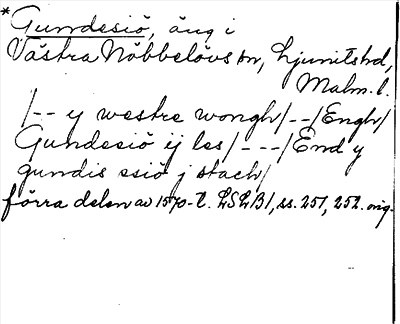 *Gundesiö, äng i
Västra Nöbbelövs sn, Ljunits hd,
Malm. l.
/-- y westre wongh/--/Engh/
Gundesiö ij les/---/End y
gundis siö j stach/
förra delen av 1570-t. LSLB1, ss. 251, 252. orig.